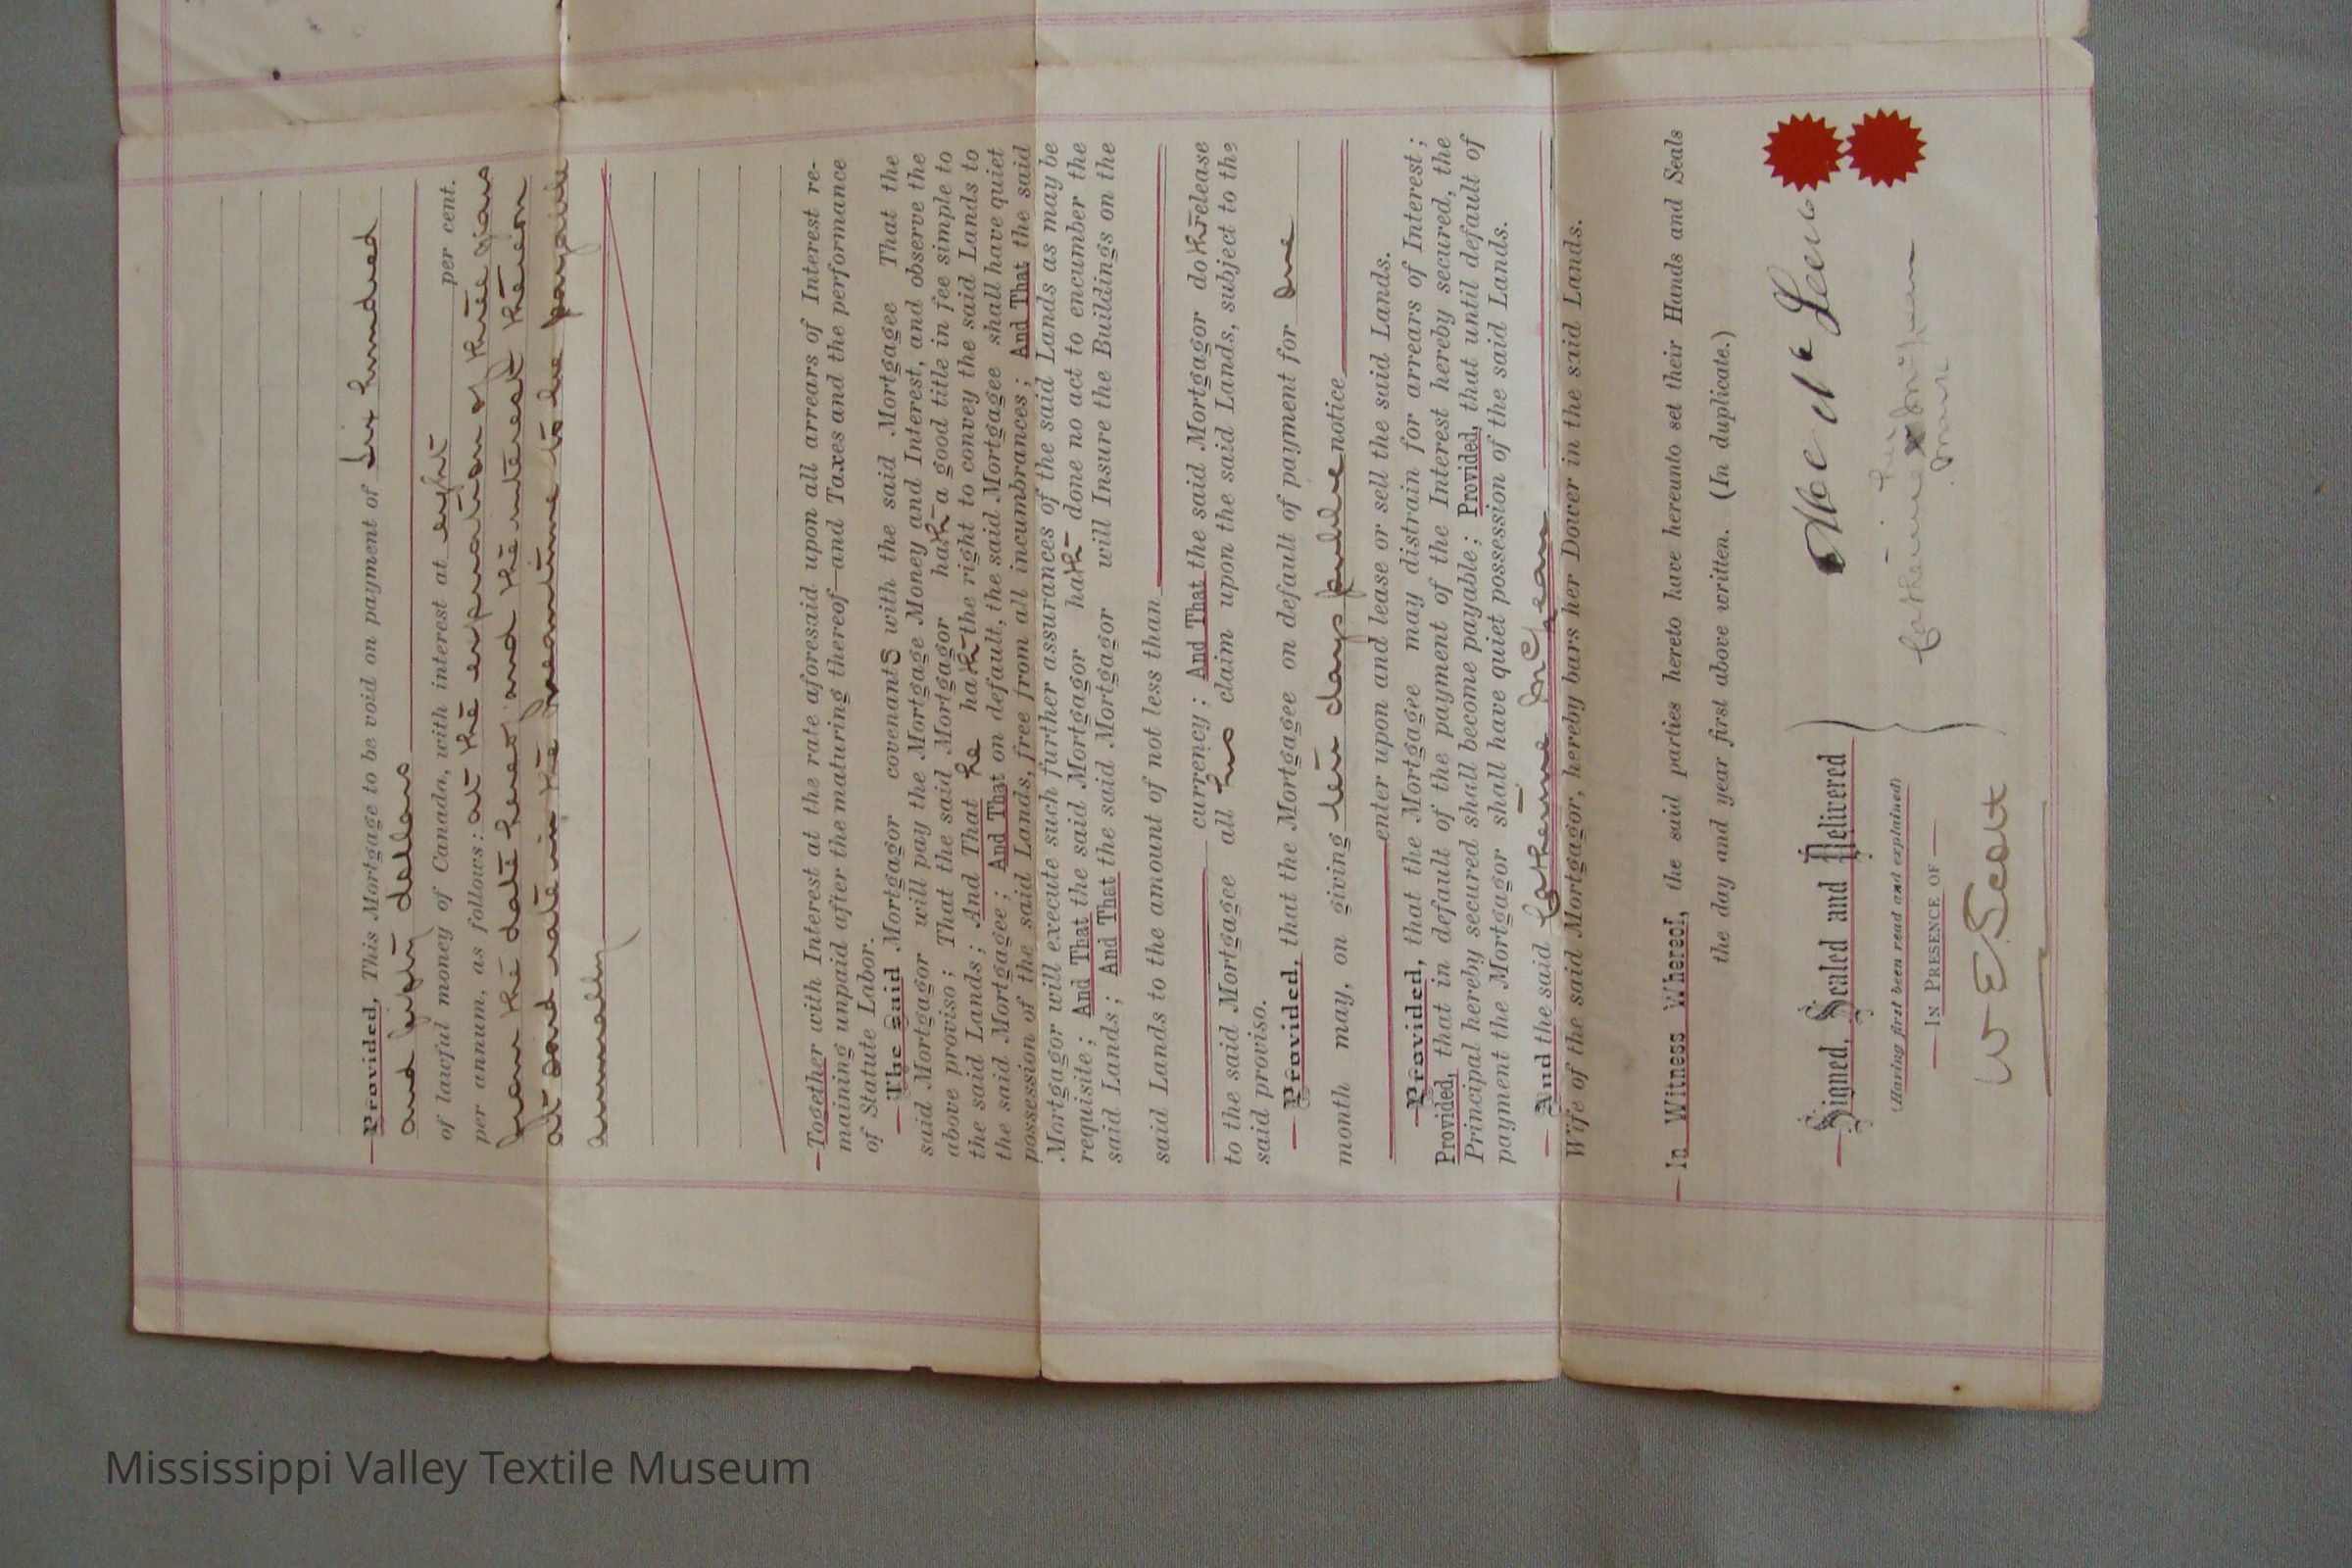 Provided, This Mortgage to be void on payment of Six hundred
and fifty dollars
of lawful money of Canada, with interest at eight per cent.
per annum, as follows: at the expiration of three years
from the date hereof and the interest thereon
at said rate in the meantime to be payable
annually
Together with Interest at the rate aforesaid upon all arrears of Interest re-
maining unpaid after the maturing thereof—and Taxes and the performance
of Statute Labor.
The said Mortgagor covenants with the said Mortgagee That the
said Mortgagor will pay the Mortgage Money and Interest, and observe the
above proviso; That the said Mortgagor hath a good title in fee simple to
the said Lands; And That he hath the right to convey the said Lands to
the said Mortgagee; And That on default, the said Mortgagee shall have quiet
possession of the said Lands, free from all incumbrances; And That the said
Mortgagor will execute such further assurances of the said Lands as may be
requisite; And That the said Mortgagor hath done no act to encumber the
said Lands; And That the said Mortgagor will Insure the Buildings on the
said Lands to the amount of not less than
currency; And That the said Mortgagor doth release
to the said Mortgagee all his claim upon the said Lands, subject to the
said proviso.
Provided, that the Mortgagee on default of payment for one
month may, on giving ten days public notice
enter upon and lease or sell the said Lands.
Provided, that the Mortgagee may distrain for arrears of Interest;
Provided, that in default of the payment of the Interest hereby secured, the
Principal hereby secured shall become payable; Provided, that until default of
payment the Mortgagor shall have quiet possession of the said Lands.
And the said Catherine
Wife of the said Mortgagor, hereby bars her Dower in the said Lands.
In Witness Whereof, the said parties hereto have hereunto set their Hands and Seals
the day and year first above written. (In duplicate.)
Signed, Sealed and Delivered
(Having first been read and explained)
IN PRESENCE OF
W E Scott
Catherine
her
x
mark
Mississippi Valley Textile Museum